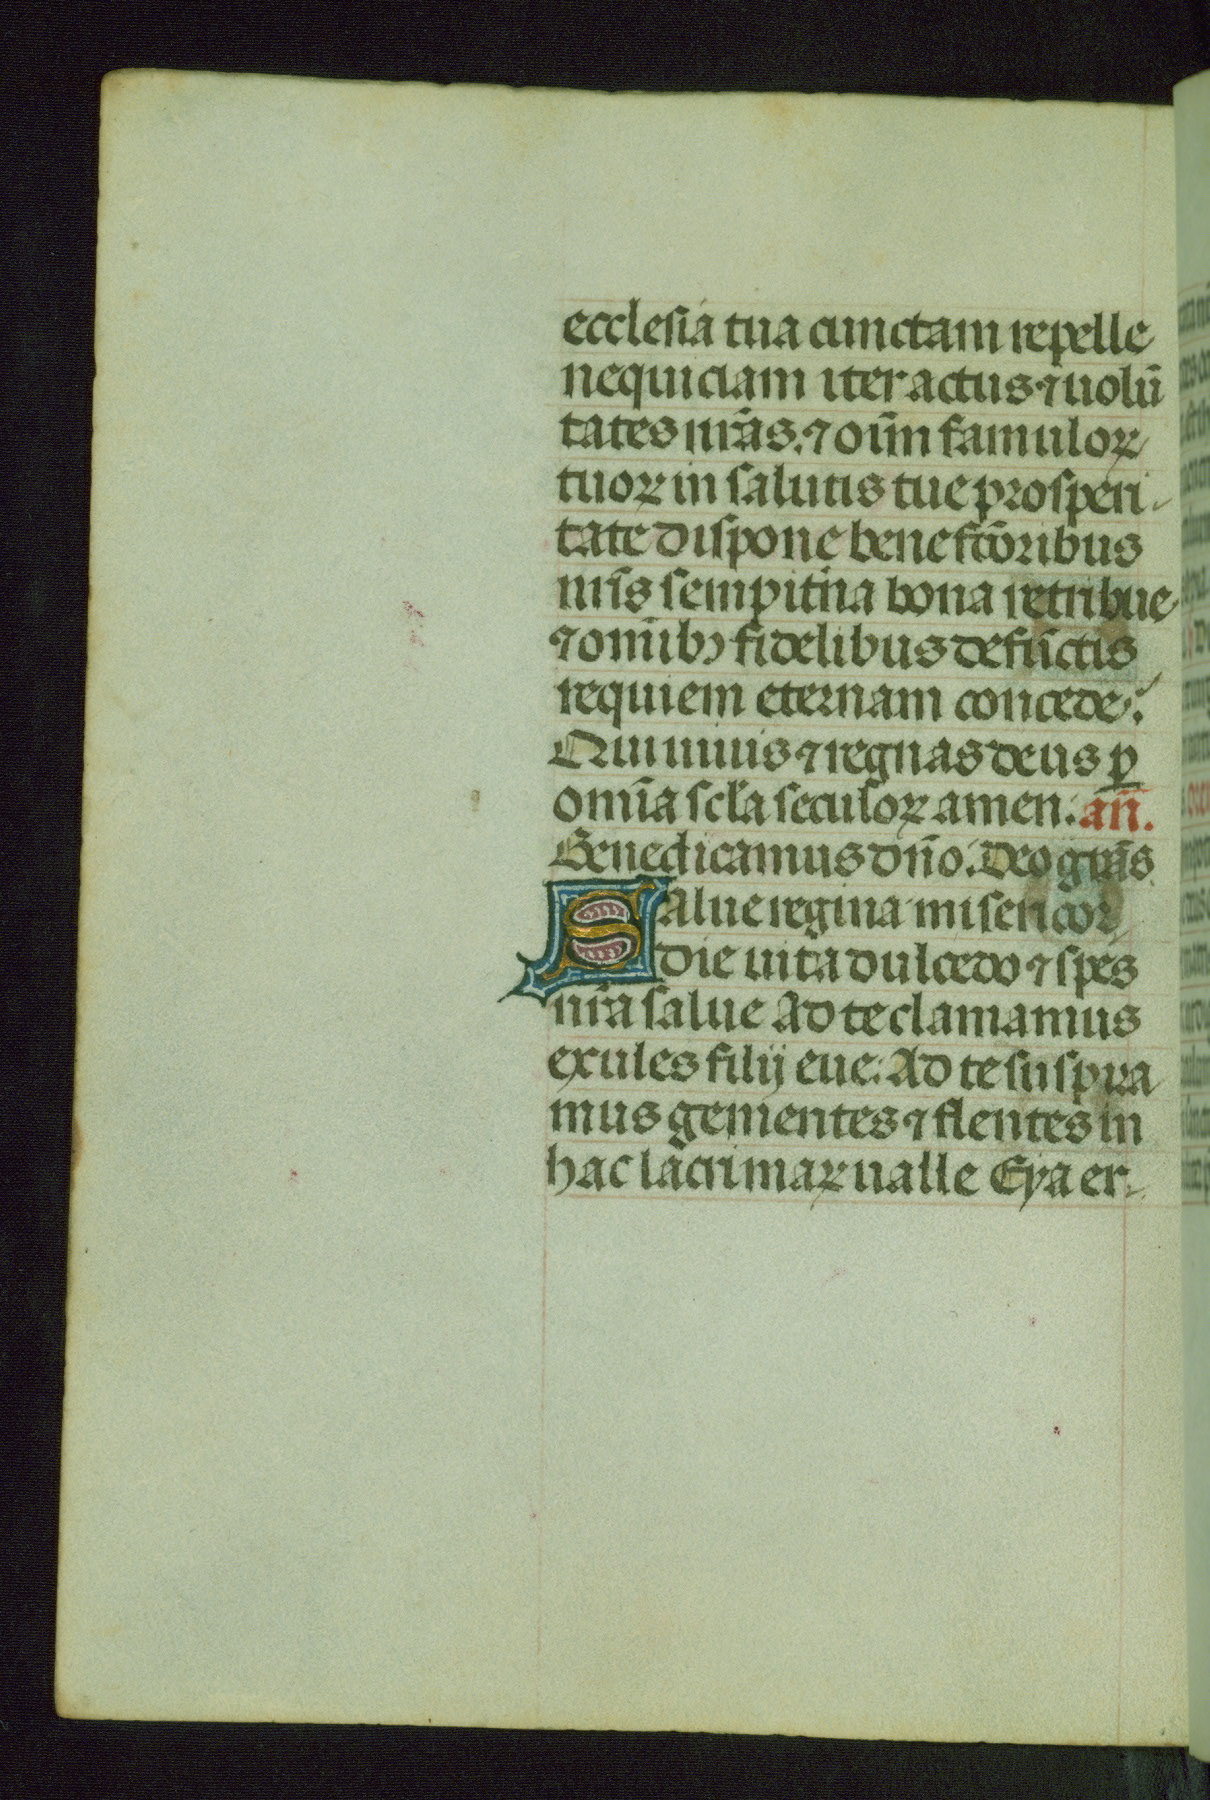 ecclesia tua cunctam repelle
nequiciam iter actus ⁊ uolū
tates nr̄as. ⁊ oīm famuloꝝ
tuoꝝ in salutis tue prosperi-
tate dispone benefc̄oribus
nr̄is sempit̄na bona retribue
⁊ om̄ibꝫ fidelibus defūctis
requiem eternam concede.
Qui uiuis ⁊ regnas deus ꝑ
om̄ia sc̄la seculoꝝ amen. an̄.
Benedicamus dn̄o. Deo gr̄as
Salue regina misericor
die uita dulcedo ⁊ spes
nr̄a salue Ad te clamamus
exules filij eue. Ad te suspira
mus gementes ⁊ flentes in
hac lacrimaꝝ ualle Eya er-